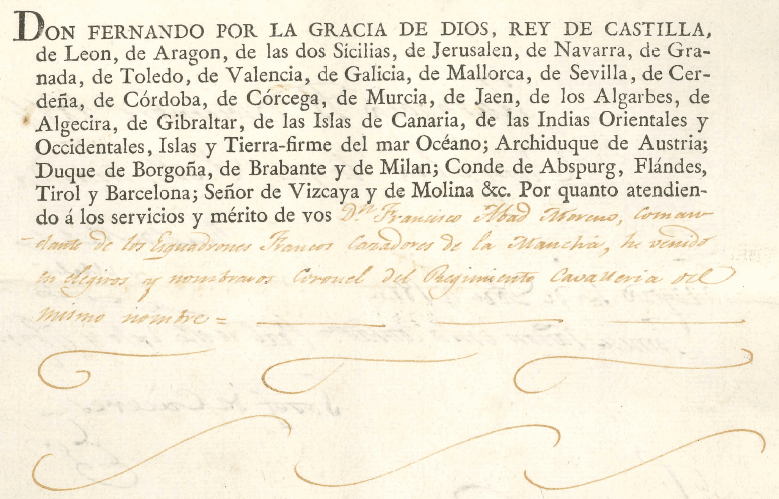 DON FERNANDO POR LA GRACIA DE DIOS, REY DE CASTILLA,
de Leon, de Aragon, de las dos Sicilias, de Jerusalen, de Navarra, de Gra-
nada, de Toledo, de Valencia, de Galicia, de Mallorca, de Sevilla, de Cer-
deña, de Córdoba, de Córcega, de Murcia, de Jaen, de los Algarbes, de
Algecira, de Gibraltar, de las Islas de Canaria, de las Indias Orientales y
Occidentales, Islas y Tierra-firme del mar Océano; Archiduque de Austria;
Duque de Borgoña, de Brabante y de Milan; Conde de Abspurg, Flándes,
Tirol y Barcelona; Señor de Vizcaya y de Molina &c. Por quanto atendien-
do á los servicios y mérito de vos Dn. Francisco Abad Moreno, coman-
dante de los Esquadrones Francos Cazadores de la Mancha, he venido
en elegiros y nombraros Coronel del Regimiento Cavalleria del
mismo nombre =